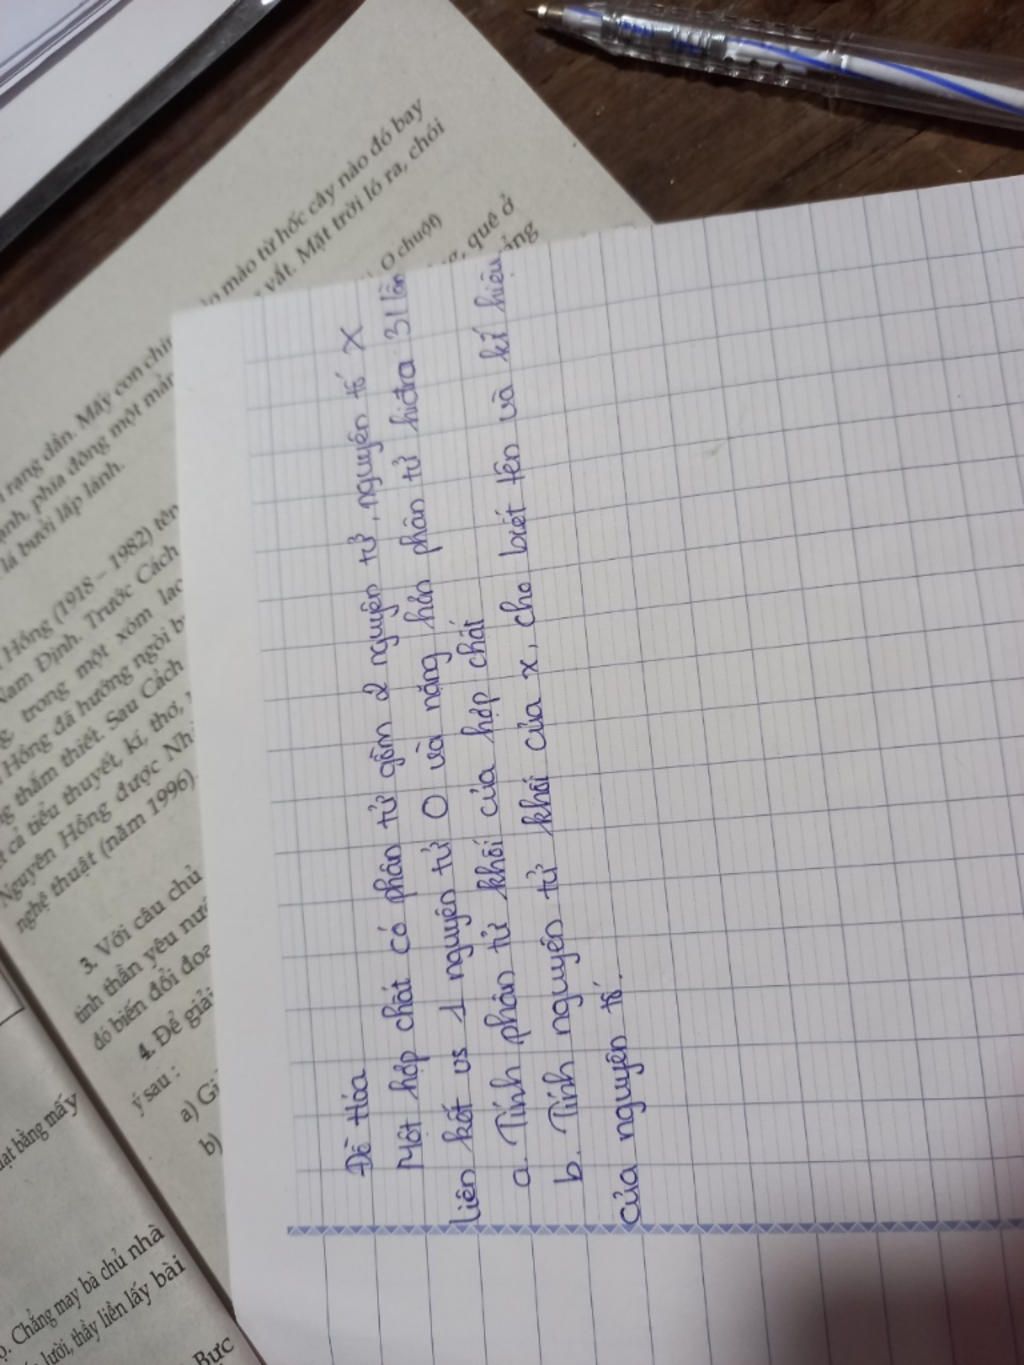 ìo mào từ hốc cây nào đó bay
vắt. Mặt trời ló ra, chói
O chuột)
quê ở
rạng dần. Mấy con chim
ạnh, phía đông một mản
lá bưởi lấp lánh.
Hồng (1918 – 1982) tên
Nam Định. Trước Cách
trong một xóm lao
Hồng đã hướng ngòi b
thắm thiết. Sau Cách
cả tiểu thuyết, kí, thơ,
Nguyên Hồng được Nh
nghệ thuật (năm 1996)
3. Với câu chủ
tinh thần yêu nướ
đó biến đổi đoạ
4. Để giải
ý sau :
a) Gi
b)
đạt bằng mấy
ọ. Chẳng may bà chủ nhà
lười, thầy liền lấy bài
Bực
Đề Hóa
Một hợp chất có phân tử gồm 2 nguyên tử, nguyên tố X
liên kết vs 1 nguyên tử O và nặng hơn phân tử hiđro 31 lần
a. Tính phân tử khối của hợp chất
b. Tính nguyên tử khối của x, cho biết tên và kí hiệu
của nguyên tố.